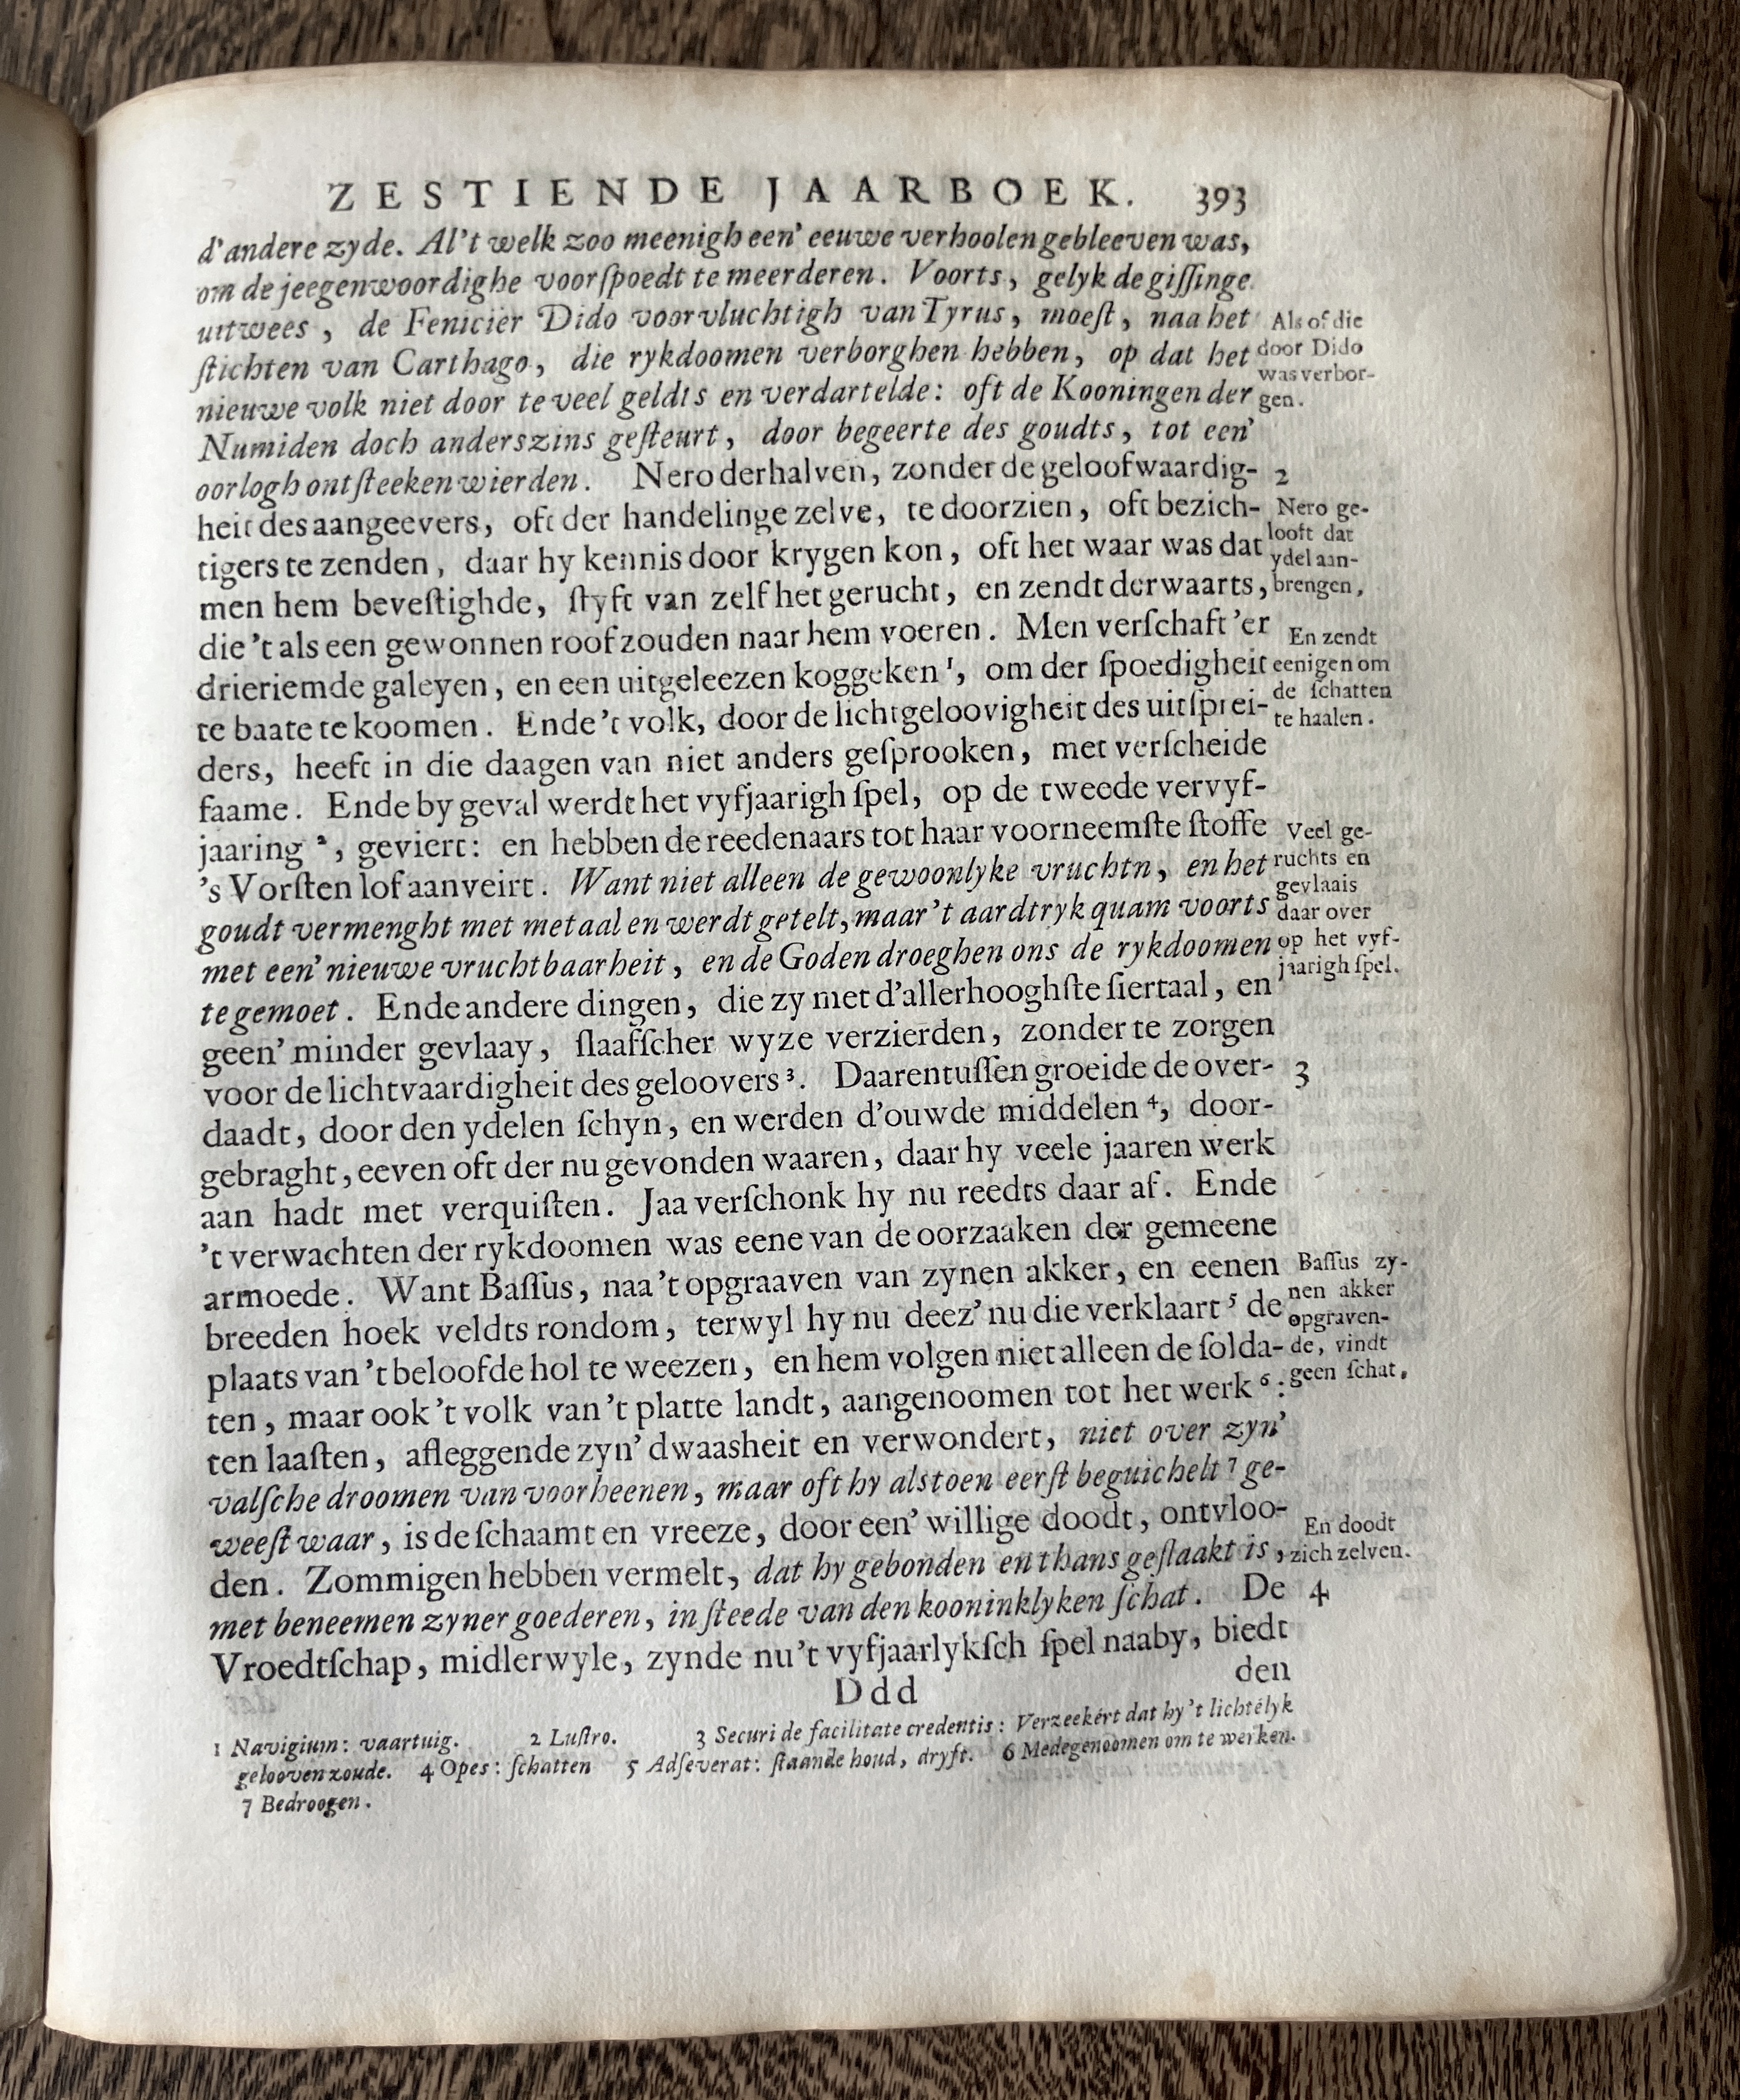 ZESTIENDE JAARBOEK. 393
d'andere zyde. Al't welk zoo meenigh een' eeuwe verhoolen gebleeven was,
om de jeegenwoordighe voorſpoedt te meerderen. Voorts, gelyk de giſſinge
uitwees, de Fenicier Dido voorvluchtigh van Tyrus, moeſt, naa het
ſtichten van Carthago, die rykdoomen verborghen hebben, op dat het
nieuwe volk niet door te veel geldts en verdartelde: oft de Kooningen der
Numiden doch anderszins geſteurt, door begeerte des goudts, tot een'
oorlogh ontſteeken wierden. Nero derhalven, zonder de geloofwaardig-
heit des aangeevers, oft der handelinge zelve, te doorzien, oft bezich-
tigers te zenden, daar hy kennis door krygen kon, oft het waar was dat
men hem beveſtighde, ſtyft van zelf het gerucht, en zendt derwaarts,
die 't als een gewonnen roof zouden naar hem voeren. Men verſchaft 'er
drieriemde galeyen, en een uitgeleezen koggeken ¹, om der ſpoedigheit
te baate te koomen. Ende 't volk, door de lichtgeloovigheit des uitſprei-
ders, heeft in die daagen van niet anders geſprooken, met verſcheide
faame. Ende by geval werdt het vyfjaarigh ſpel, op de tweede vervyf-
jaaring ², geviert: en hebben de reedenaars tot haar voorneemſte ſtoffe
's Vorſten lof aanveirt. Want niet alleen de gewoonlyke vruchtn, en het
goudt vermenght met metaal en werdt getelt, maar 't aardtryk quam voorts
met een' nieuwe vruchtbaarheit, en de Goden droeghen ons de rykdoomen
te gemoet. Ende andere dingen, die zy met d'allerhooghſte ſiertaal, en
geen' minder gevlaay, ſlaafſcher wyze verzierden, zonder te zorgen
voor de lichtvaardigheit des geloovers ³. Daarentuſſen groeide de over-
daadt, door den ydelen ſchyn, en werden d'ouwde middelen ⁴, door-
gebraght, eeven oft der nu gevonden waaren, daar hy veele jaaren werk
aan hadt met verquiſten. Jaa verſchonk hy nu reedts daar af. Ende
't verwachten der rykdoomen was eene van de oorzaaken der gemeene
armoede. Want Baſſus, naa 't opgraaven van zynen akker, en eenen
breeden hoek veldts rondom, terwyl hy nu deez' nu die verklaart ⁵ de
plaats van 't beloofde hol te weezen, en hem volgen niet alleen de ſolda-
ten, maar ook 't volk van 't platte landt, aangenoomen tot het werk ⁶:
ten laaſten, afleggende zyn' dwaasheit en verwondert, niet over zyn'
valſche droomen van voorheenen, maar oft hy alstoen eerſt beguichelt ⁷ ge-
weeſt waar, is de ſchaamt en vreeze, door een' willige doodt, ontvloo-
den. Zommigen hebben vermelt, dat hy gebonden en thans geſlaakt is,
met beneemen zyner goederen, in ſteede van den kooninklyken ſchat. De
Vroedtſchap, midlerwyle, zynde nu 't vyfjaarlykſch ſpel naaby, biedt
Ddd den
Als of die
door Dido
was verbor-
gen.
2
Nero ge-
looft dat
ydel aan-
brengen,
En zendt
eenigen om
de ſchatten
te haalen.
Veel ge-
ruchts en
gevlaais
daar over
op het vyf-
jaarigh ſpel.
3
Baſſus zy-
nen akker
opgraven-
de, vindt
geen ſchat,
En doodt
zich zelven.
4
1 Navigium: vaartuig. 2 Luſtro. 3 Securi de facilitate credentis: Verzeekért dat hy 't lichtélyk
gelooven zoude. 4 Opes: ſchatten 5 Adſeverat: ſtaande houd, dryft. 6 Medegenoomen om te werken.
7 Bedroogen.